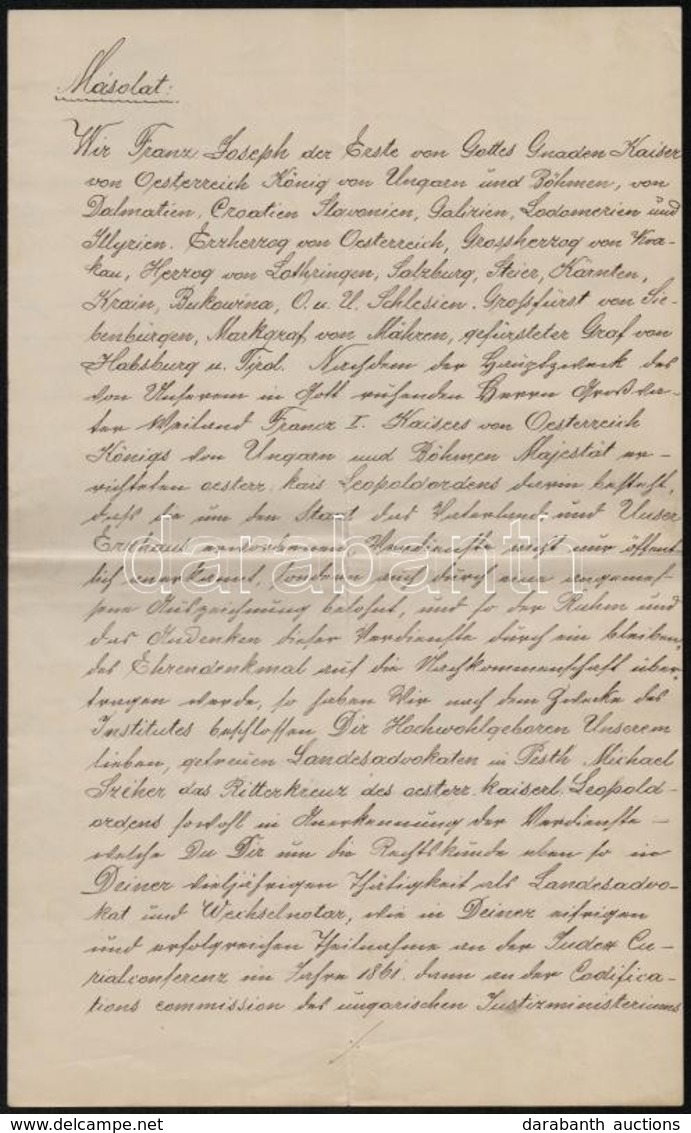 Másolat:
Wir Franz Joseph der Erste von Gottes Gnaden Kaiser
von Oesterreich König von Ungarn und Böhmen, von
Dalmatien, Croatien Slavonien, Galizien, Lodomerien und
Illyrien. Erzherzog von Oesterreich, Grossherzog von Kra-
kau, Herzog von Lothringen, Salzburg, Steier, Kärnten,
Krain, Bukowina, O. u. U. Schlesien. Großfürst von Sie-
benbürgen, Markgraf von Mähren, gefürsteter Graf von
Habsburg u. Tyrol. Nachdem der Hauptzweck des
von Unserem in Gott ruhenden Herrn Großva-
ter Weiland Francz I. Kaisers von Oesterreich
Königs von Ungarn und Böhmen Majestät er-
richteten oesterr. kais Leopoldordens darin besteht,
daß die um den Staat das Vaterland und Unser
Erzhaus erworbenen Verdienste nicht nur öffent-
lich anerkannt, sondern auch durch eine angemes-
sene Auszeichnung belohnt, und so der Ruhm und
das Andenken dieser Verdienste durch ein bleiben-
des Ehrendenkmal auf die Nachkommenschaft über-
tragen werde, so haben Wir nach dem Zwecke des
Institutes beschlossen Dir Hochwohlgeboren Unserem
lieben, getreuen Landesadvokaten in Pesth Michael
Széher das Ritterkreuz des oesterr. kaiserl. Leopold-
ordens sowohl in Anerkennung der Verdienste -
welche Du Dir um die Rechtskunde eben so in
Deiner vieljährigen Thätigkeit als Landesadvo-
kat und Wechselnotar, wie in Deiner eifrigen
und erfolgreichen Theilnahme an der Judex Cu-
rialconferenz im Jahre 1861. dann an der Codifica-
tions commission des ungarischen Justizministeriums
./.
darabanth
darabanth auctions